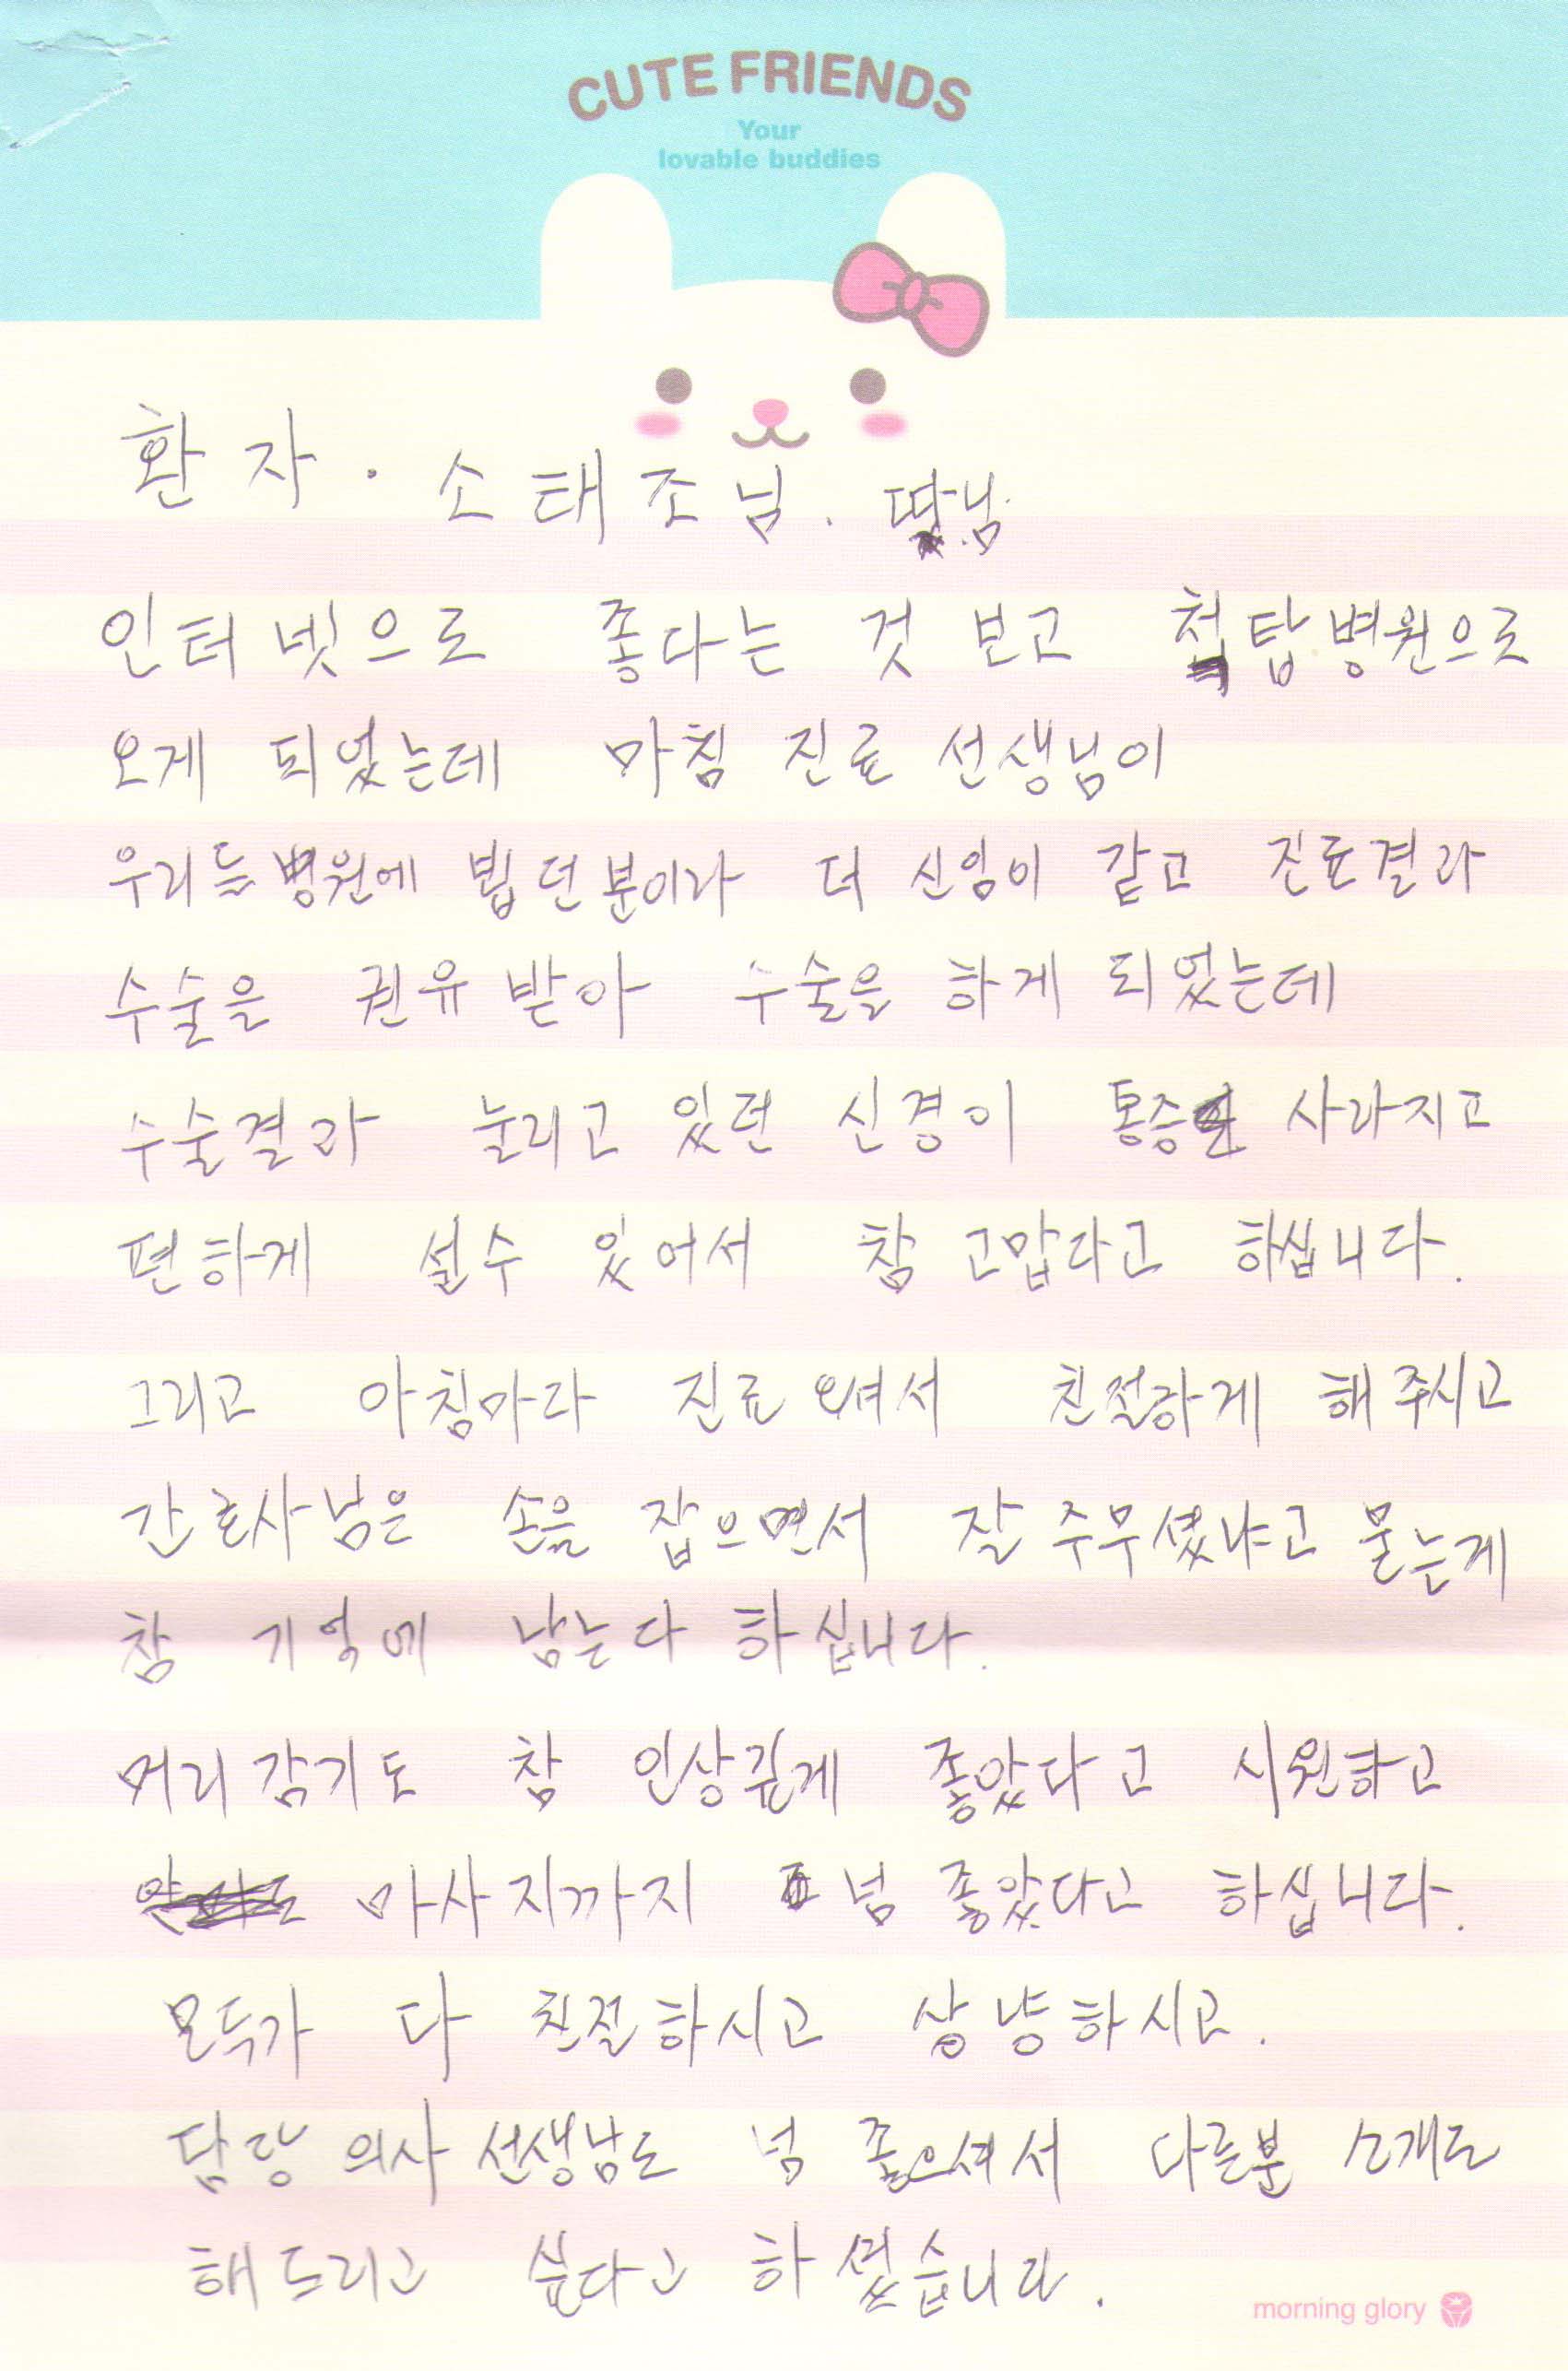 CUTE FRIENDS
Your
lovable buddies
환자. 소태조님. 딸님
인터넷으로 좋다는 것 보고 척탑병원으로
오게 되었는데 마침 진료 선생님이
우리들병원에 뵙던분이라 더 신임이 같고 진료결과
수술을 권유 받아 수술을 하게 되었는데
수술결과 눌리고 있던 신경이 통증도 사라지고
편하게 설수 있어서 참 고맙다고 하십니다.
그리고 아침마다 진료 오셔서 친절하게 해주시고
간호사님은 손을 잡으면서 잘 주무셨냐고 묻는게
참 기억에 남는다 하십니다.
머리감기도 참 인상깊게 좋았다고 시원하고
마사지까지 넘 좋았다고 하십니다.
모두가 다 친절하시고 상냥하시고.
담당 의사 선생님도 넘 좋으셔서 다른분 소개도
해드리고 싶다고 하셨습니다.
morning glory